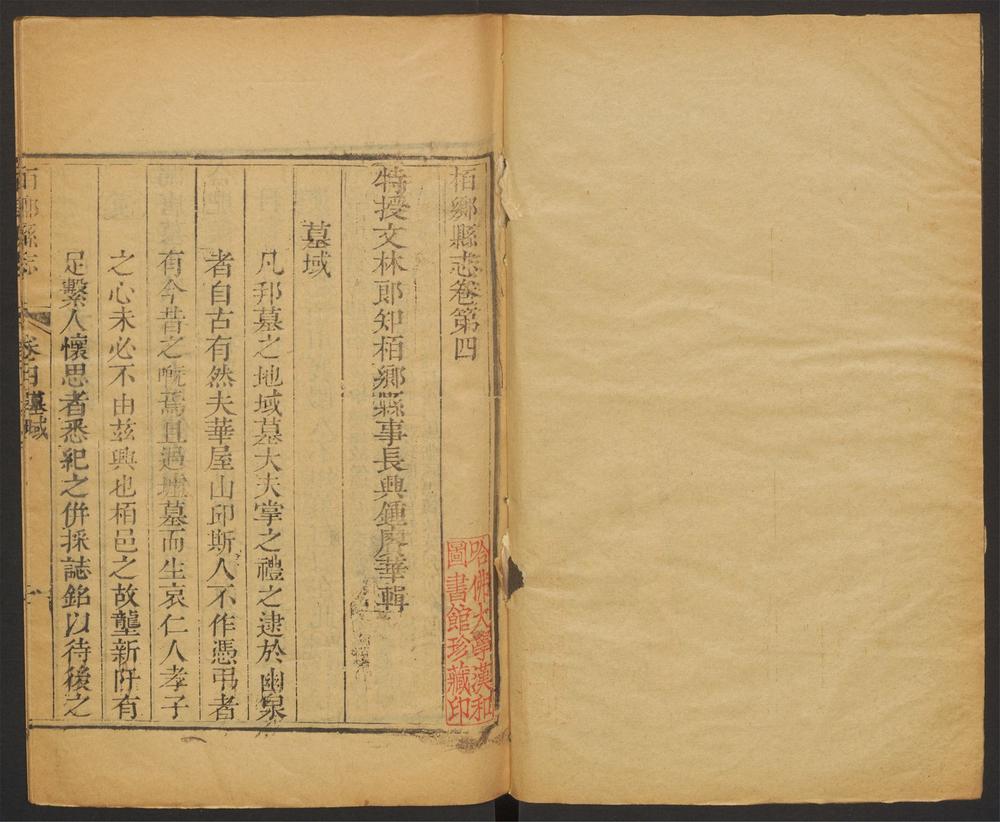 柏鄉縣志卷第四
特授文林郎知柏鄉縣事長興鍾賡華輯
墓域
凡邦墓之地域墓大夫掌之禮之逮於幽泉
者自古有然夫華屋山邱斯人不作憑弔者
有今昔之慨焉且過墟墓而生哀仁人孝子
之心未必不由玆興也柏邑之故壟新阡有
足繫人懷思者悉紀之併採誌銘以待後之
柏鄉縣志
卷四
墓域
一
哈佛大學漢和
圖書館珍藏印